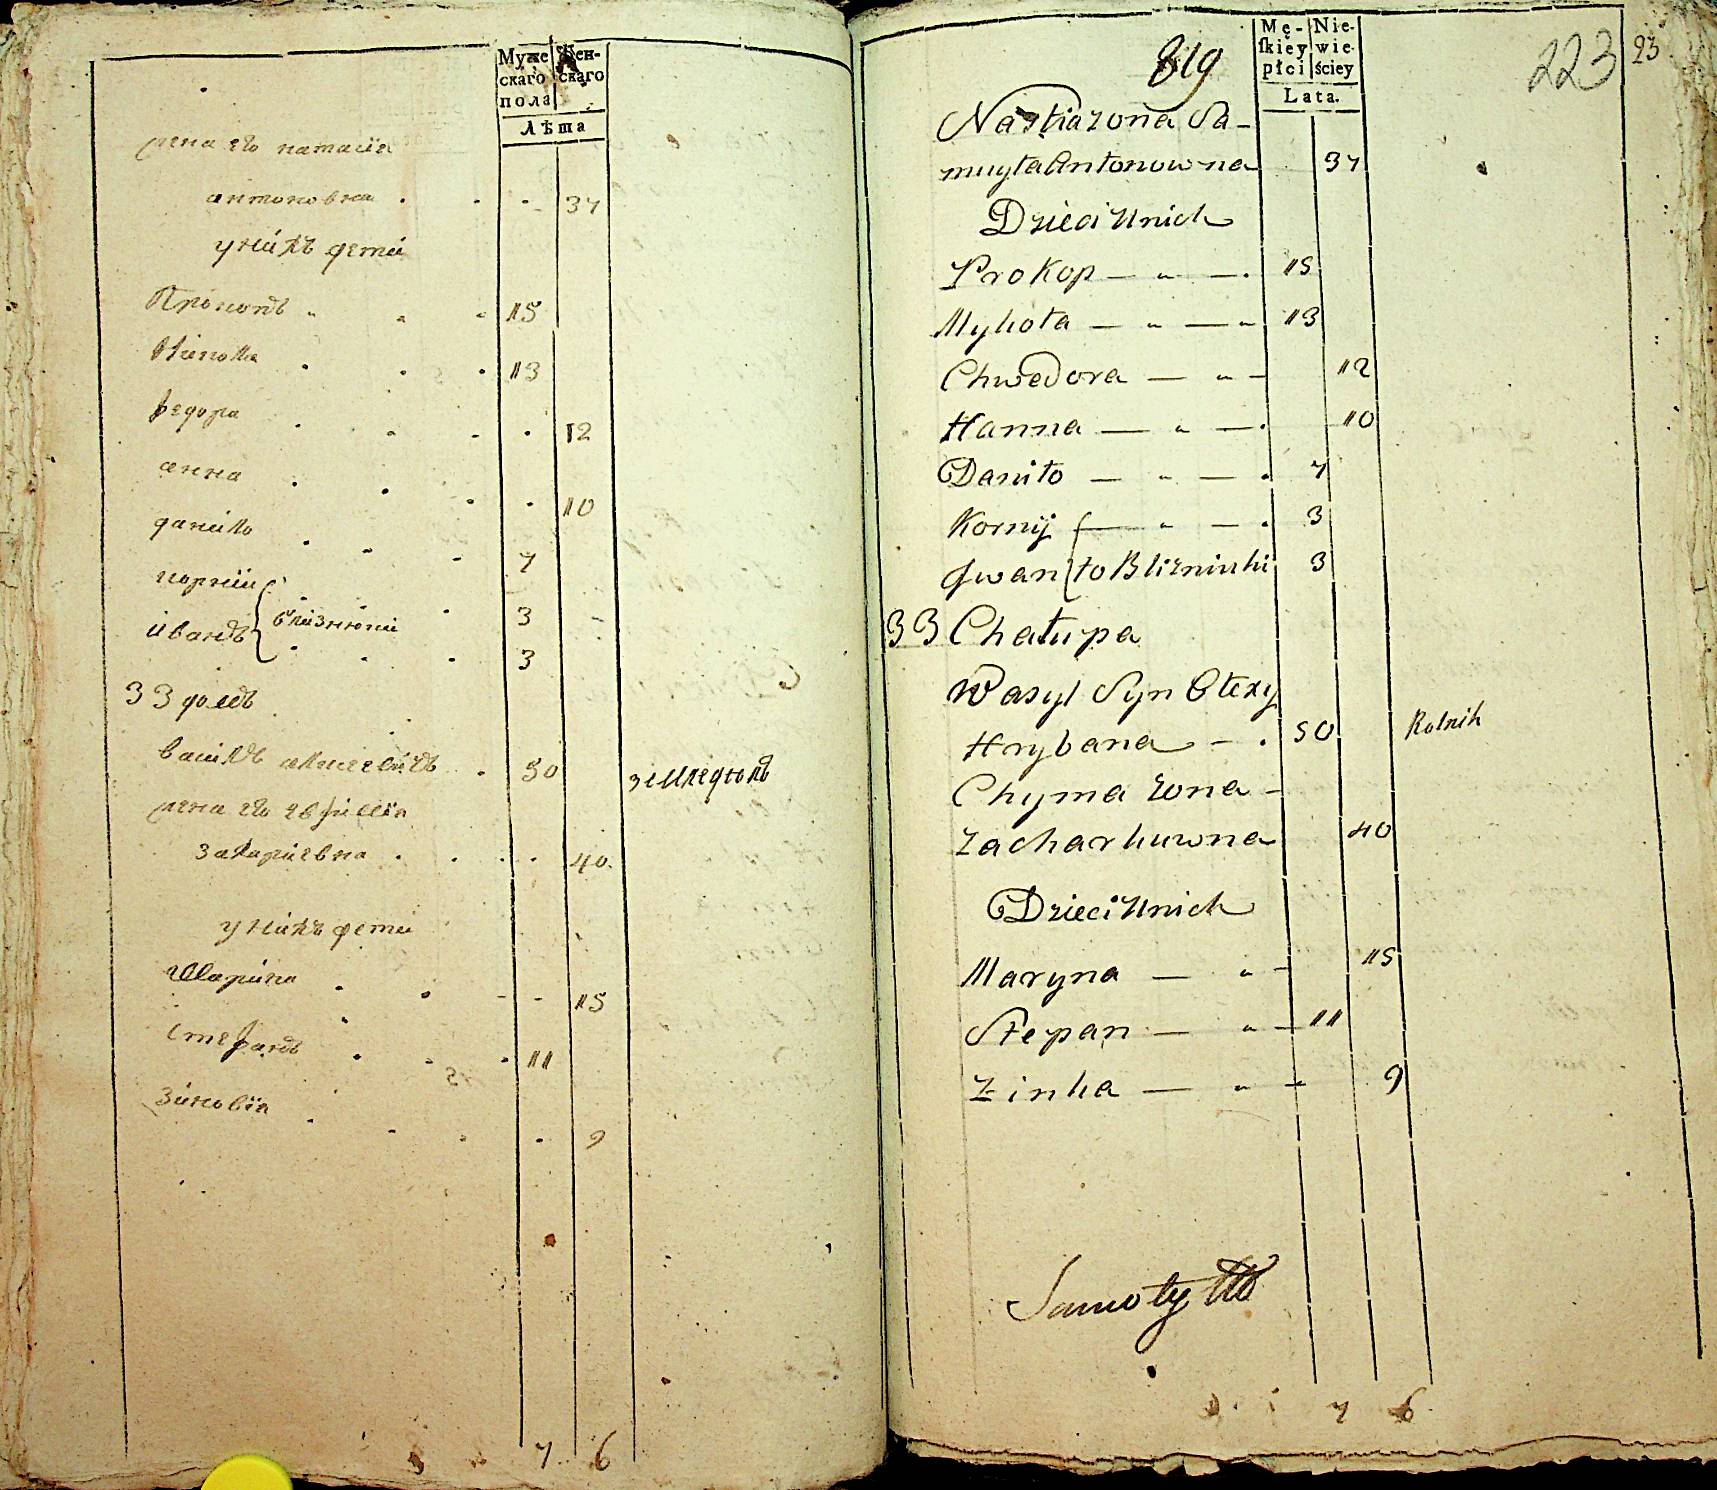 Муже
скаго
пола
Жен-
скаго
Лѣта
жена его наталiя
антоновна 37
у нихъ дети
Прокопъ 15
Никола 13
Федора 12
анна 10
данило 7
корнiи 3
iванъ близнюки 3
33 домъ
василь алексеевичъ 50 земледѣлъ
жена его евфимiя
захариевна 40
у нихъ дети
Марина 15
Стефанъ 11
Зиновiя 9
7 6
819
Mę-
ſkiey
płci
Nie-
wie-
ściey
Lata.
223
23
Nastia zona Sa-
muyła Antonowna 37
Dzieci Unich
Prokop 15
Mykoła 13
Chwedora 12
Hanna 10
Daniło 7
Kornij 3
Jwan to Blizniuki 3
33 Chałupa
Wasyl Syn Ołexy
Hrybana 50 Rolnik
Chyma zona
Zacharkuwna 40
Dzieci Unich
Maryna 15
Stepan 11
Zinka 9
7 6